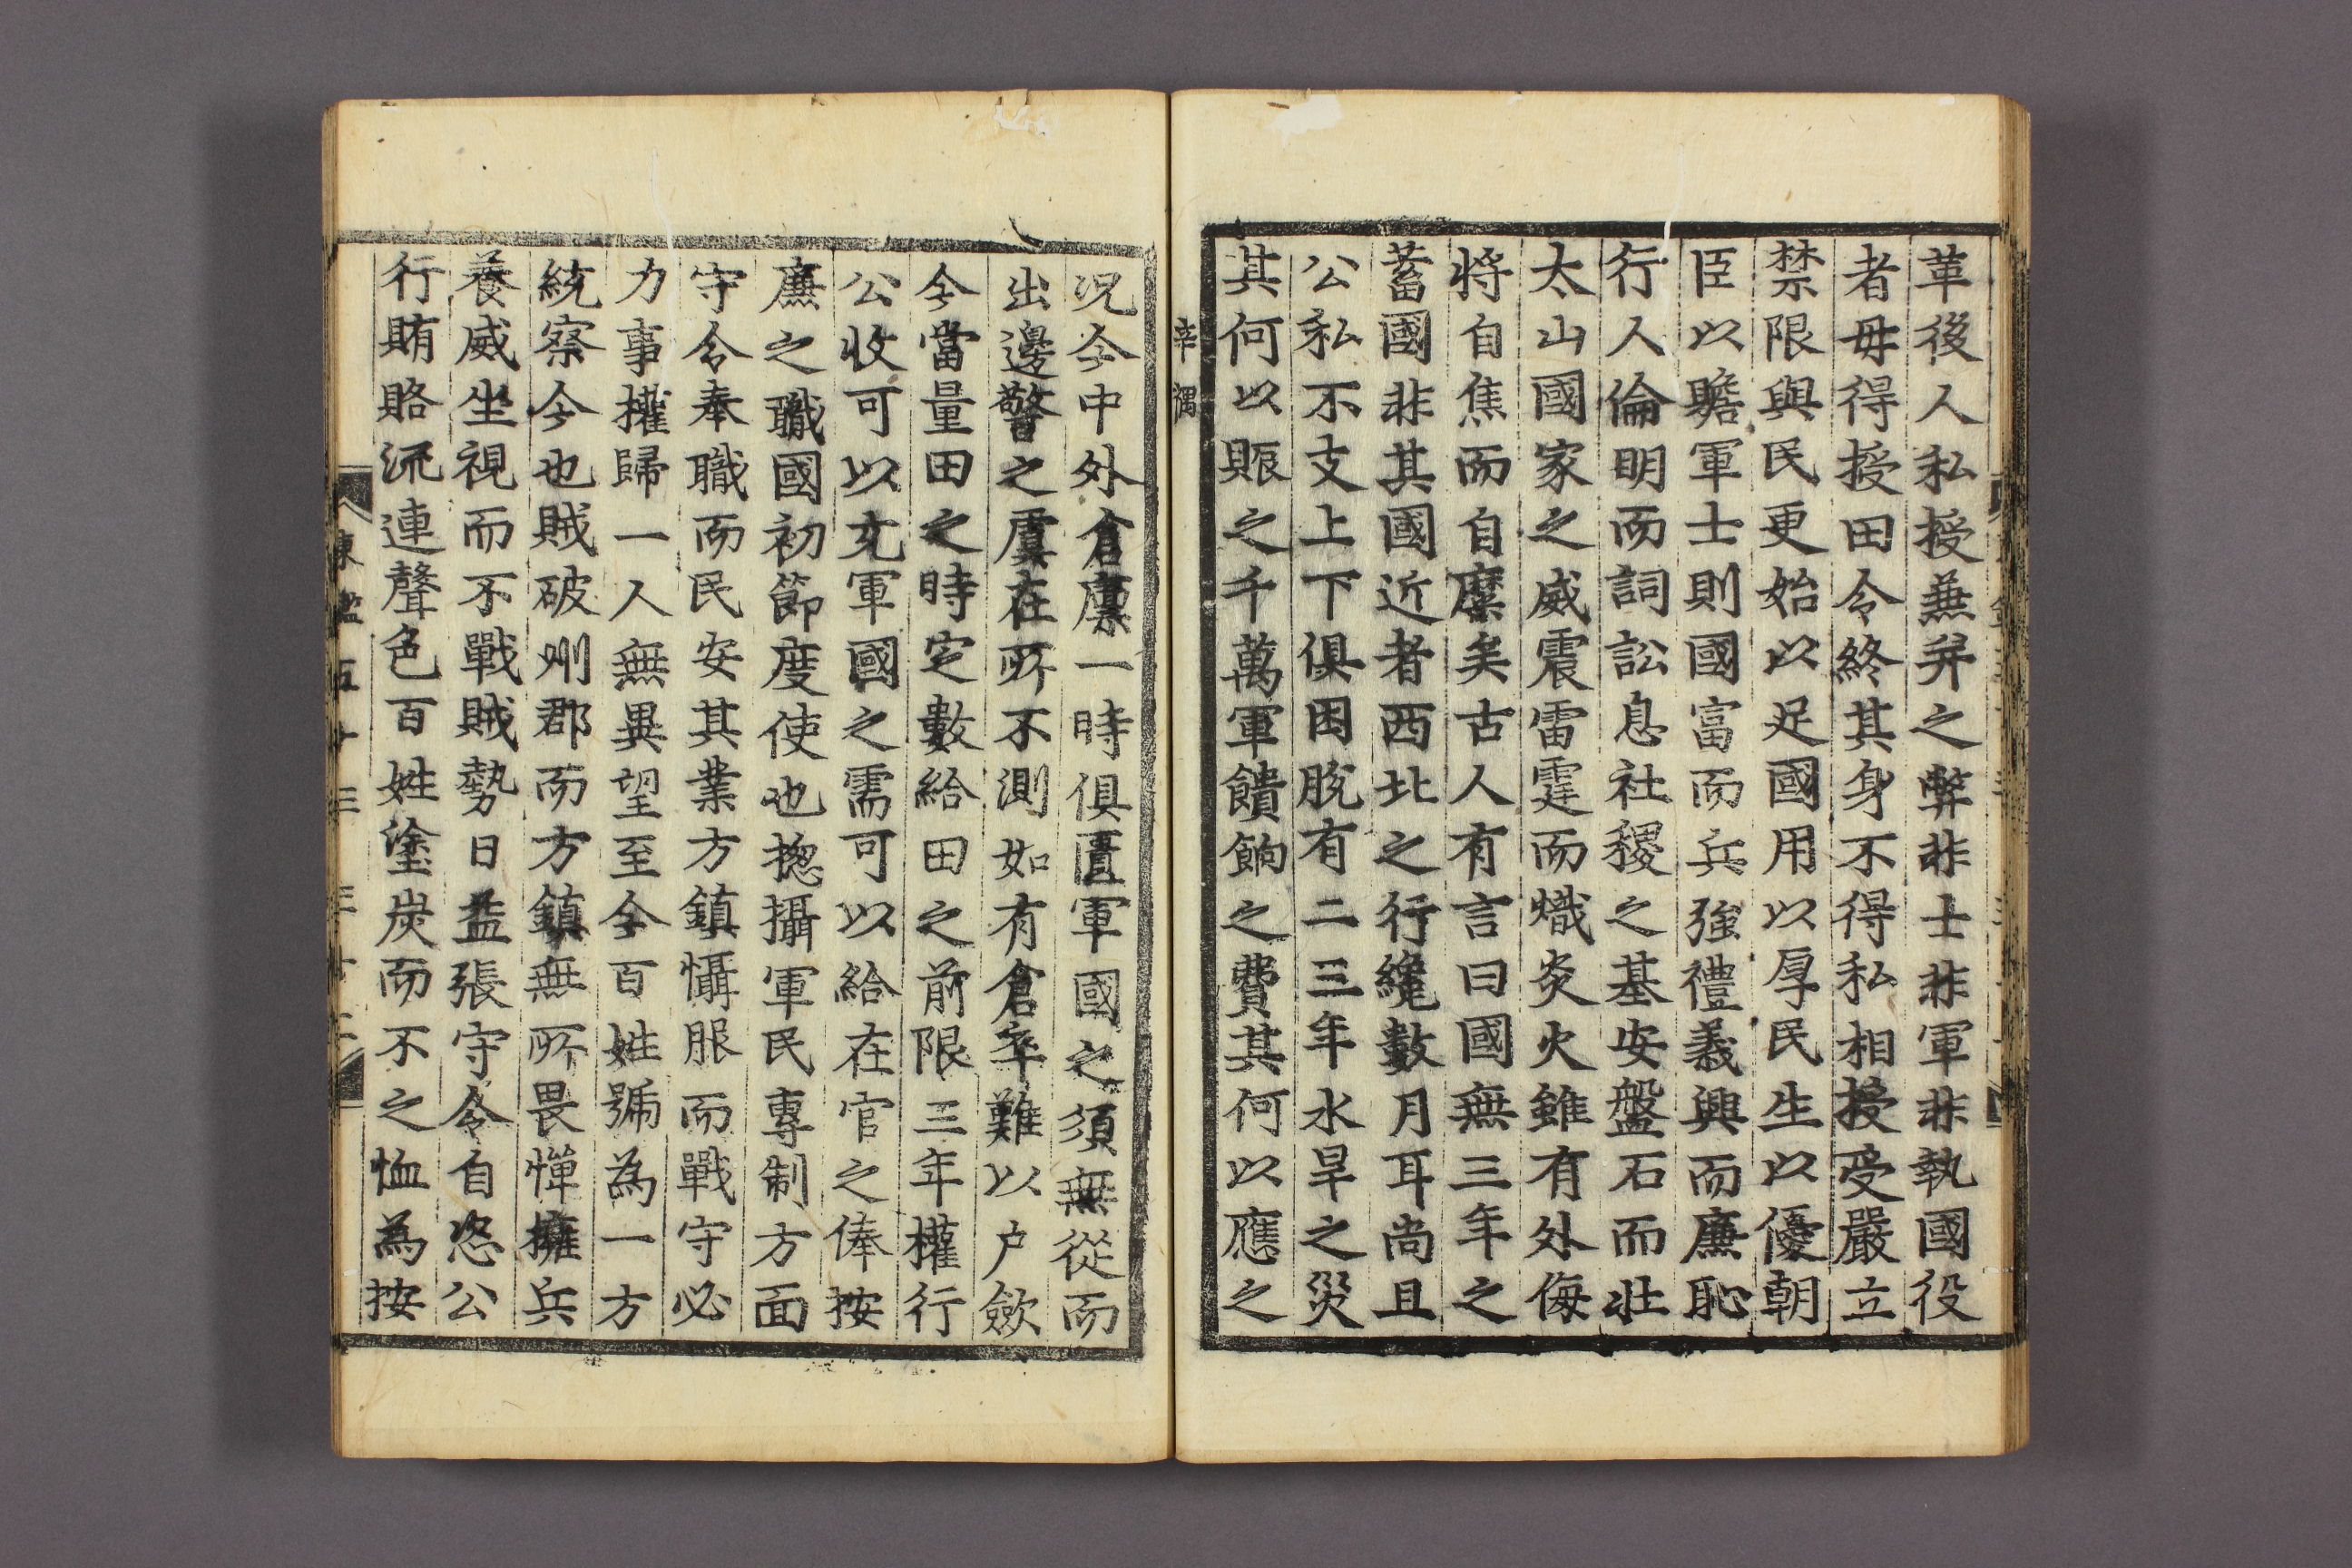 革後人私授兼幷之弊非士非軍非執國役
者毋得授田令終其身不得私相授受嚴立
禁限與民更始以足國用以厚民生以優朝
臣以贍軍士則國富而兵強禮義興而廉恥
行人倫明而詞訟息社稷之基安盤石而壯
太山國家之威震雷霆而熾炎火雖有外侮
將自焦而自糜矣古人有言曰國無三年之
蓄國非其國近者西北之行纔數月耳尚且
公私不支上下俱困脫有二三年水旱之災
其何以賑之千萬軍饋餉之費其何以應之
辛禑
况今中外倉廩一時俱匱軍國之須無從而
出邊警之虞在所不測如有倉卒難以户斂
今當量田之時定數給田之前限三年權行
公收可以充軍國之需可以給在官之俸按
廉之職國初節度使也摠攝軍民專制方面
守令奉職而民安其業方鎮懾服而戰守必
力事權歸一人無異望至今百姓號為一方
統察今也賊破州郡而方鎮無所畏憚擁兵
養威坐視而不戰賊勢日益張守令自恣公
行賄賂流連聲色百姓塗炭而不之恤為按